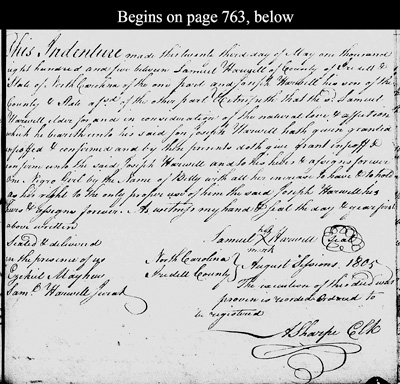 Begins on page 763, below
This Indenture made this twenty third day of May one thousand
eight hundred and five between Samuel Harwell of County of Iredell &
State of North Carolina of the one part and Joseph Harwell his son of the
County & State afsd of the other part Witnesseth that the sd Samuel
Harwell Elder for and in consideration of the natural love & affection
which he beareth unto his said son Joseph Harwell hath given granted
& confirmed and by these presents doth give grant &
confirm unto the said Joseph Harwell and to his heirs & assigns forever
one Negro Girl by the Name of Billy with all her increase to have & to hold
as his right to the only proper use of him the said Joseph Harwell his
heirs & assigns forever. As witness my hand & seal the day & year first
above written
Sealed & delivered
in the presence of us
Ezekiel Mayhew
Saml. Harwell Jurat
his
Samuel X Harwell Seal
mark
North Carolina
Iredell County
August Sessions 1805
The execution of this deed was
proven & recorded Ordered to
be registered
A Sharpe Clk